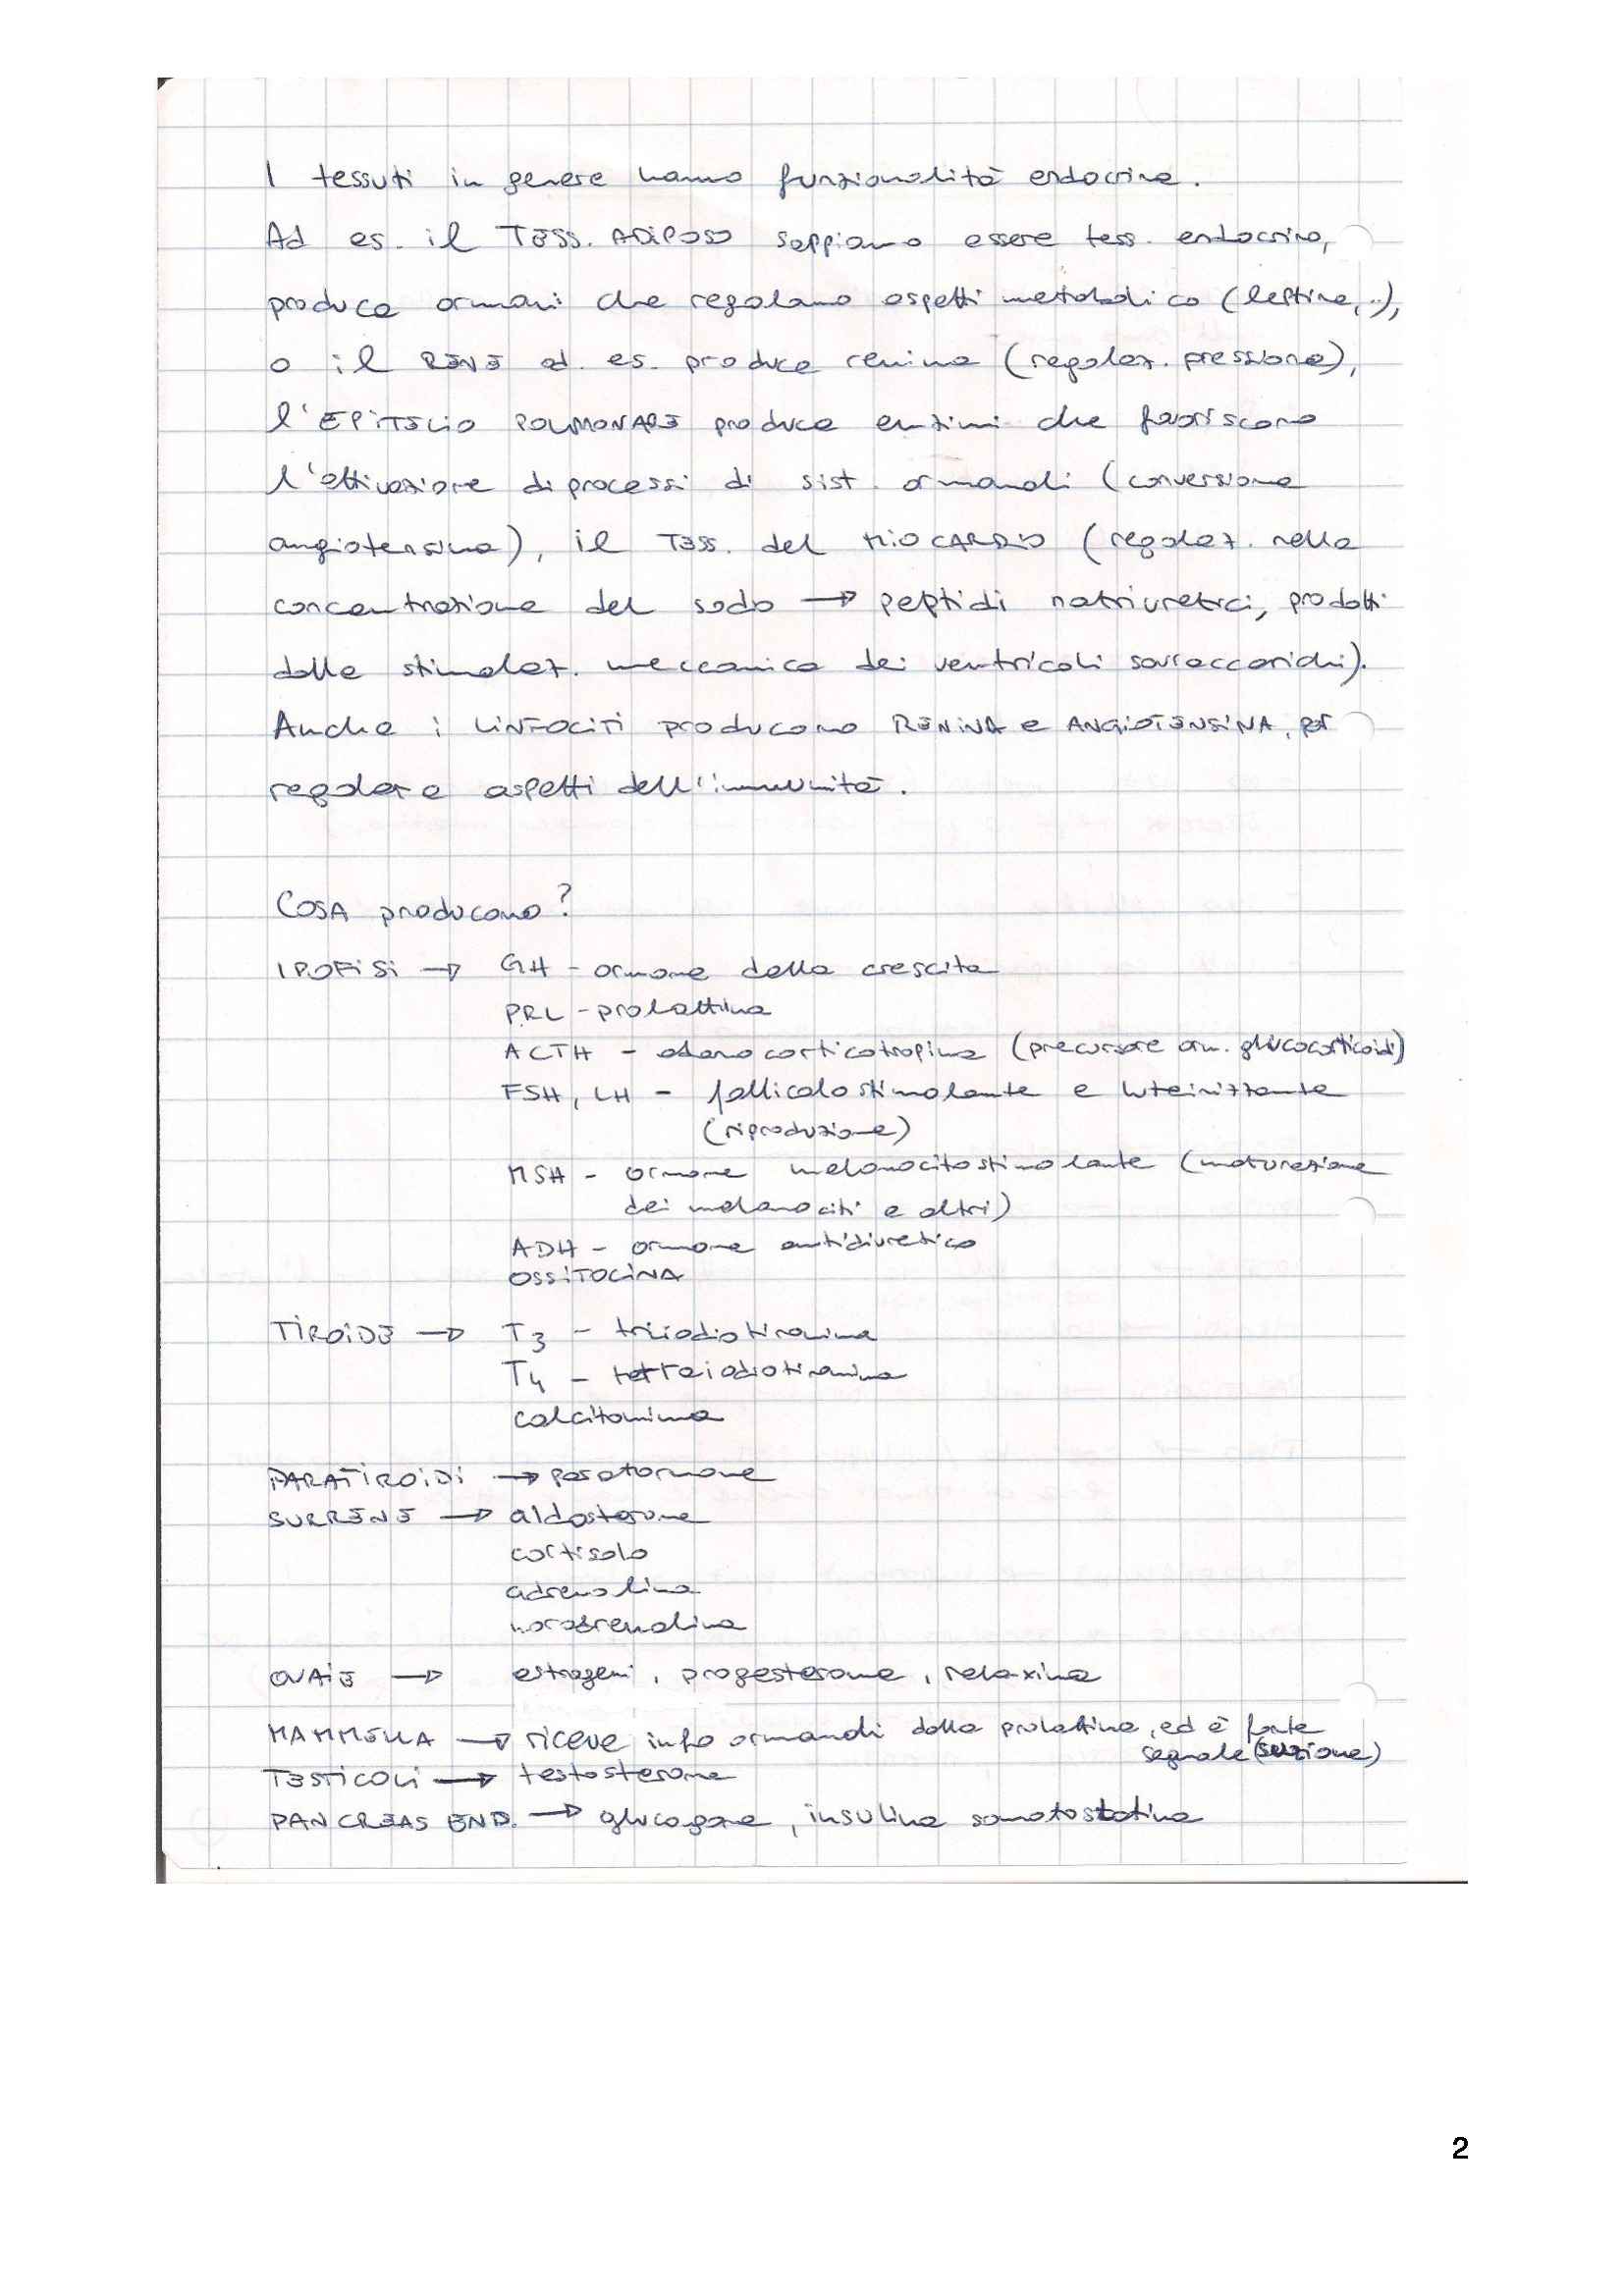 I tessuti in genere hanno funzionalità endocrina.
Ad es. il TESS. ADIPOSO sappiamo essere tess. endocrino,
produce ormoni che regolano aspetti metabolico (leptina,..),
o il RENE ad. es. produce renina (regolaz. pressione),
l'EPITELIO POLMONARE produce enzimi che favoriscono
l'attivazione di processi di sist. ormonali (conversione
angiotensina), il TESS. del MIOCARDIO (regolaz. nella
concentrazione del sodio → peptidi natriuretici, prodotti
dalla stimolaz. meccanica dei ventricoli sovraccarichi).
Anche i LINFOCITI producono RENINA e ANGIOTENSINA, per
regolare aspetti dell'immunità.
COSA producono?
IPOFISI → GH - ormone della crescita
PRL - prolattina
ACTH - adrenocorticotropina (precursore orm. glucocorticoidi)
FSH, LH - follicolostimolante e luteinizzante
(riproduzione)
MSH - ormone melanocitostimolante (maturazione
dei melanociti e altri)
ADH - ormone antidiuretico
OSSITOCINA
TIROIDE → T3 - triiodiotironina
T4 - tetraiodiotironina
calcitonina
PARATIROIDI → paratormone
SURRENE → aldosterone
cortisolo
adrenalina
noradrenalina
OVAIE → estrogeni, progesterone, relaxina
MAMMELLA → riceve info ormonali dalla prolattina, ed è fonte
segnale (suzione)
TESTICOLI → testosterone
PANCREAS END. → glucagone, insulina somatostatina
2